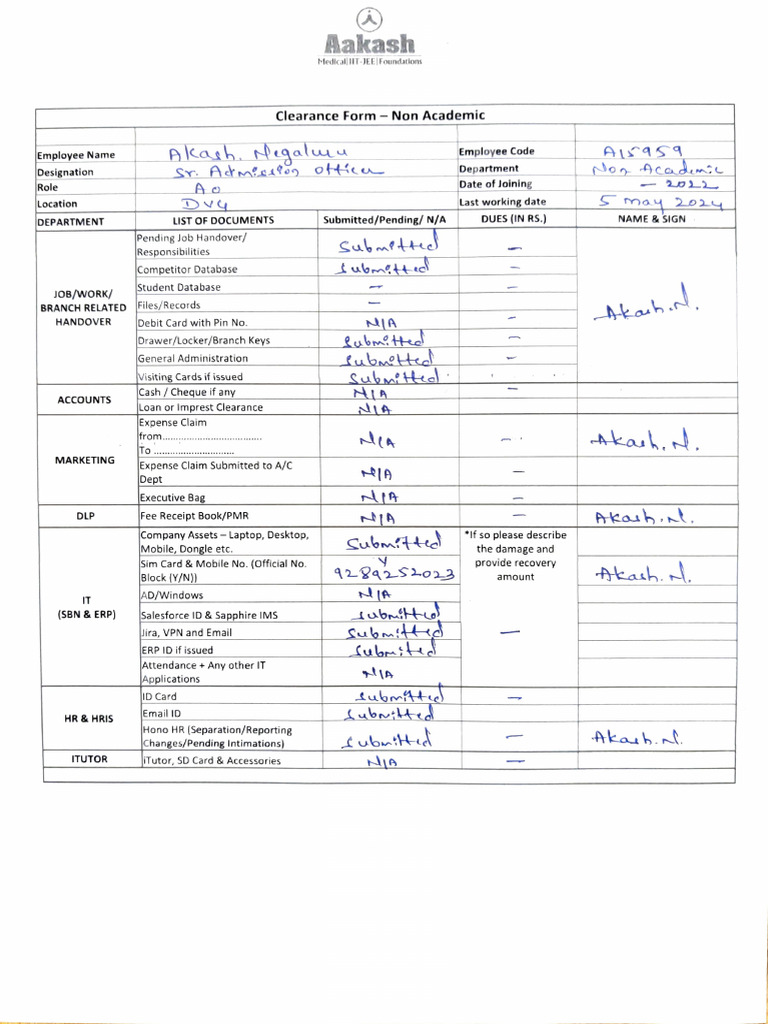 Aakash
Medical|IIT-JEE|Foundations
Clearance Form – Non Academic
Employee Name Akash. Negaluru Employee Code A15959
Designation Sr. Admission Officer Department Non Academic
Role AO Date of Joining – 2022
Location DVG Last working date 5 May 2024
DEPARTMENT LIST OF DOCUMENTS Submitted/Pending/ N/A DUES (IN RS.) NAME & SIGN
JOB/WORK/
BRANCH RELATED
HANDOVER
Pending Job Handover/
Responsibilities Submitted –
Competitor Database Submitted –
Student Database – –
Files/Records –
Debit Card with Pin No. N/A –
Drawer/Locker/Branch Keys Submitted –
General Administration Submitted –
Visiting Cards if issued Submitted
Akash.N.
ACCOUNTS
Cash / Cheque if any N/A –
Loan or Imprest Clearance N/A
MARKETING
Expense Claim
from......................................
To ............................. N/A – Akash.N.
Expense Claim Submitted to A/C
Dept N/A –
Executive Bag N/A –
DLP Fee Receipt Book/PMR N/A – Akash.N.
IT
(SBN & ERP)
Company Assets – Laptop, Desktop,
Mobile, Dongle etc. Submitted
Sim Card & Mobile No. (Official No.
Block (Y/N)) Y
9289252023
AD/Windows N/A
Salesforce ID & Sapphire IMS Submitted
Jira, VPN and Email Submitted
ERP ID if issued Submitted
Attendance + Any other IT
Applications N/A
*If so please describe
the damage and
provide recovery
amount
–
Akash.N.
HR & HRIS
ID Card Submitted –
Email ID Submitted
Hono HR (Separation/Reporting
Changes/Pending Intimations) Submitted – Akash.N.
ITUTOR iTutor, SD Card & Accessories N/A –